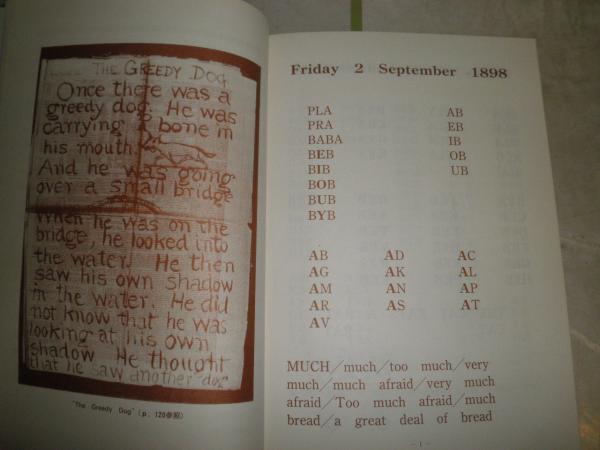 THE GREEDY DOG
Once there was a
greedy dog. He was
carrying a bone in
his mouth.
And he was going
over a small bridge
When he was on the
bridge, he looked into
the water. He then
saw his own shadow
in the water. He did
not know that he was
looking at his own
shadow He thought
that he saw another "dog"
"The Greedy Dog" (p. 120参照)
Friday 2 September 1898
PLA AB
PRA EB
BABA IB
BEB OB
BIB UB
BOB
BUB
BYB
AB AD AC
AG AK AL
AM AN AP
AR AS AT
AV
MUCH/much/too much/very
much/much afraid/very much
afraid/Too much afraid/much
bread/a great deal of bread
- 1 -